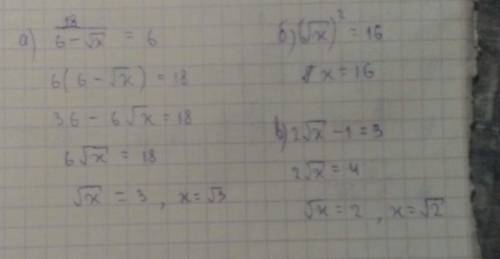 а) 18/(6-√x) = 6
6(6-√x) = 18
36-6√x = 18
6√x = 18
√x = 3, x=√3
б) (√x)² = 16
x = 16
в) 2√x - 1 = 3
2√x = 4
√x = 2, x=√2